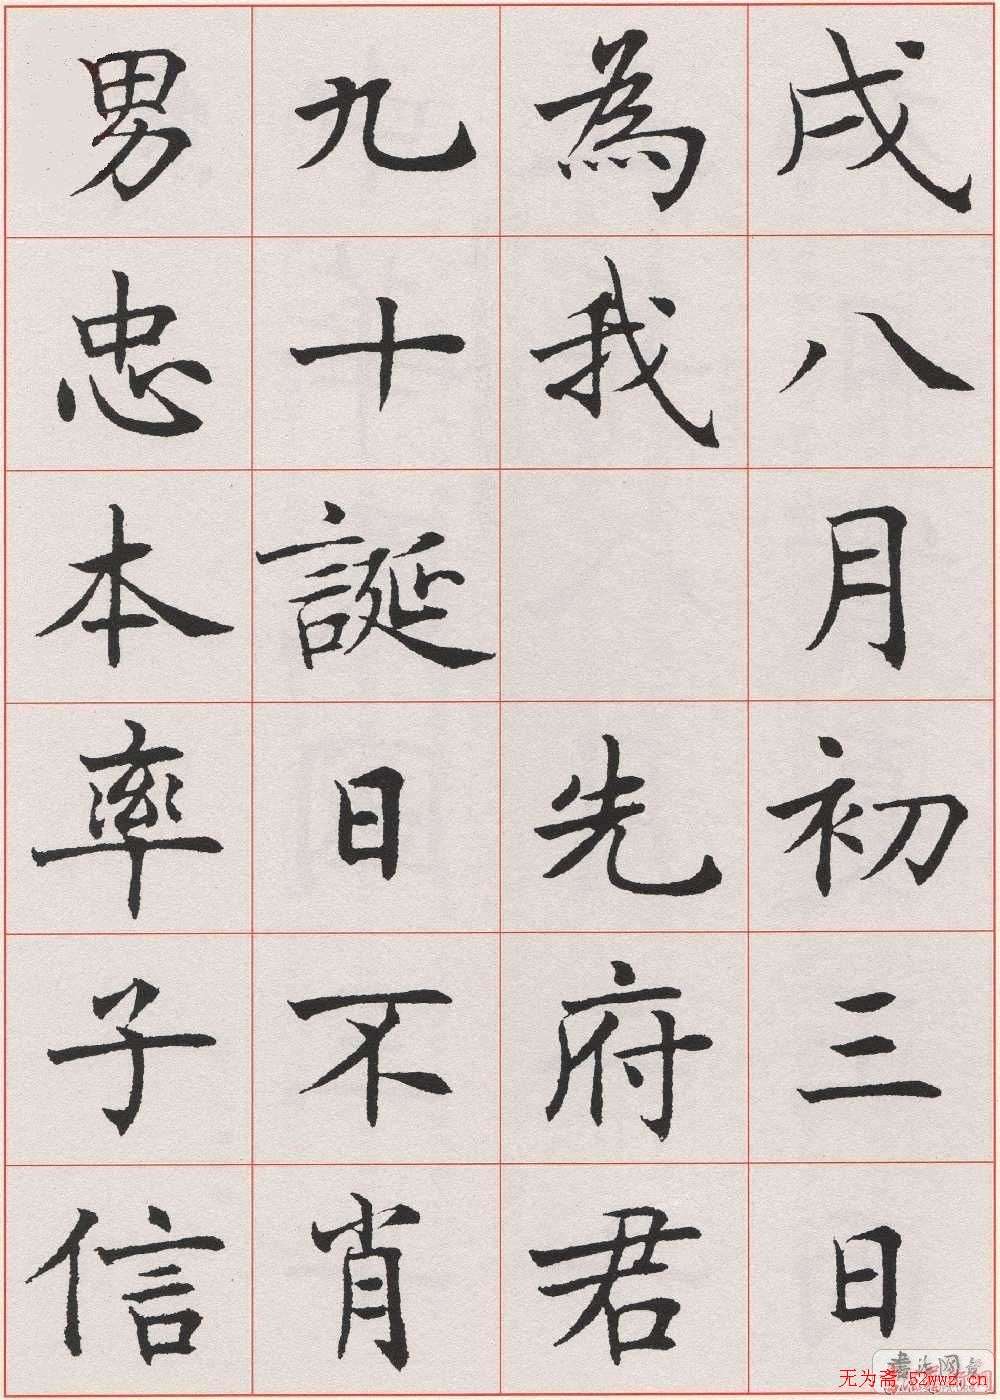 戌八月初三日
為我 先府君
九十誕日不肖
男忠本率子信
无为斋:52wwz.cn